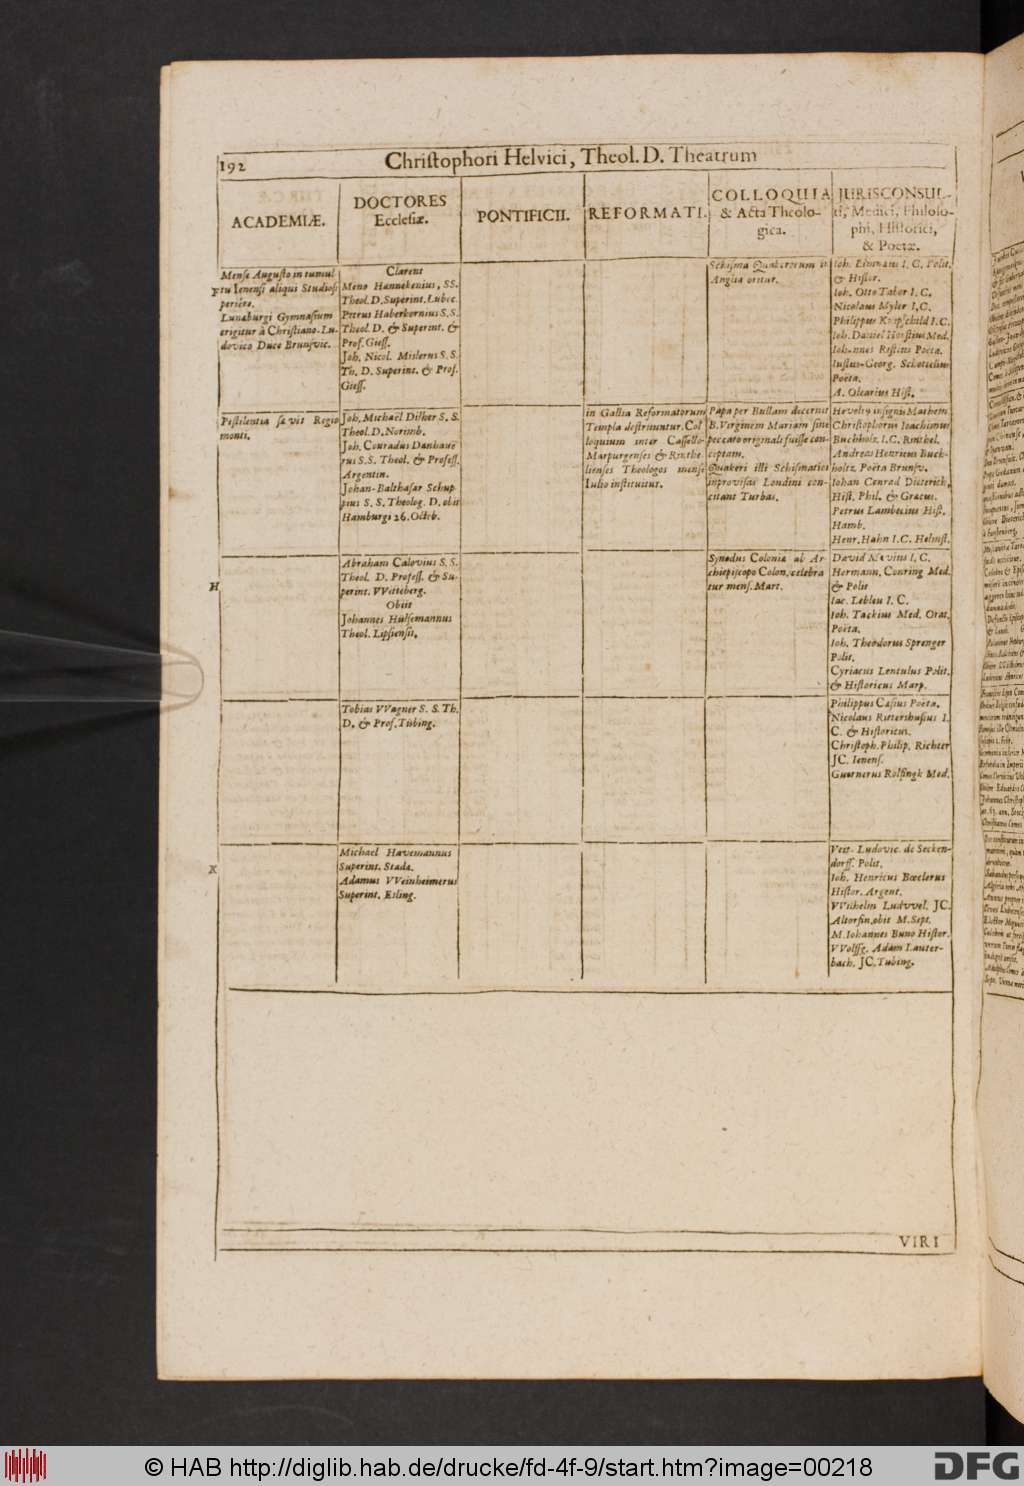 192
Christophori Helvici, Theol. D. Theatrum
ACADEMIÆ.
DOCTORES
Ecclesiæ.
PONTIFICII.
REFORMATI.
COLLOQUIA
& Acta Theolo-
gica.
JURISCONSUL-
ti, Medici, Philolo-
phi, Historici,
& Poetæ.
Mense Augusto in tumul
tu Ienensi aliqui Studiosi
periére.
Lunæburgi Gymnasium
erigitur à Christiano-Lu-
dovico Duce Brunsvic.
Clarent
Meno Hannekenius, SS.
Theol. D. Superint. Lubec.
Petrus Haberkornius S.S.
Theol. D. & Superint. &
Prof. Giess.
Joh. Nicol. Mislerus S. S.
Th. D. Superint. & Prof.
Giess.
Schisma Quakerorum in
Anglia oritur.
Ioh. Limnæus I. C. Polit.
& Histor.
Ioh. Otto Tabor I. C.
Nicolaus Myler I. C.
Philippus Knipschild I. C.
Ioh. Daniel Horstius Med.
Iohannes Ristius Poëta.
Iustus-Georg. Schottelius
Poëta.
A. Olearius Hist.
Pestilentia sævit Regio
monti.
Joh. Michaël Dilher S. S.
Theol. D. Norimb.
Joh. Conradus Danhaue
rus S.S. Theol. & Profess.
Argentin.
Johan-Balthasar Schup-
pius S. S. Theolog. D. obit
Hamburgi 26. Octob.
in Gallia Reformatorum
Templa destruuntur. Col
loquium inter Cassello-
Marpurgenses & Rinthe
lienses Theologos mense
Iulio instituitur.
Papa per Bullam decernit
B. Virginem Mariam sine
peccato originali fuisse con-
ceptam.
Quakeri illi Schismatici
inprovisas Londini con-
citant Turbas.
Hevelius insignis Mathem.
Christophorus Ioachimus
Buchholz. I. C. Rinthel.
Andreas Henricus Buck-
holtz. Poëta Brunsv.
Iohan Conrad Dieterich,
Hist. Phil. & Græcus.
Petrus Lambecius Hist.
Hamb.
Henr. Hahn I. C. Helmst.
H
Abraham Calovius S. S.
Theol. D. Profess. & Su-
perint. VVitteberg.
Obiit
Johannes Hulsemannus
Theol. Lipsiensis.
Synodus Coloniæ ab Ar-
chiepiscopo Colon. celebra
tur mens. Mart.
David Mevius I. C.
Hermann. Conring Med.
& Polit
Iac. Lebleu I. C.
Ioh. Tackius Med. Orat.
Poëta.
Ioh. Theodorus Sprenger
Polit.
Cyriacus Lentulus Polit.
& Historicus Marp.
Tobias VVagner S. S. Th.
D. & Prof. Tübing.
Philippus Cæsius Poëta.
Nicolaus Rittershusius I.
C. & Historicus.
Christoph. Philip. Richter
JC. Ienens.
Guernerus Rolfingk Med.
K
Michael Havemannus
Superint. Stada.
Adamus VVeinheimerus
Superint. Esling.
Veit- Ludovic. de Secken-
dorff. Polit.
Ioh. Henricus Bœclerus
Histor. Argent.
VVilhelm Ludvvel. JC.
Altorfin. obit M. Sept.
M. Iohannes Buno Histor.
VVolffg. Adam Lauter-
bach. JC. Tubing.
VIRI
© HAB http://diglib.hab.de/drucke/fd-4f-9/start.htm?image=00218
DFG